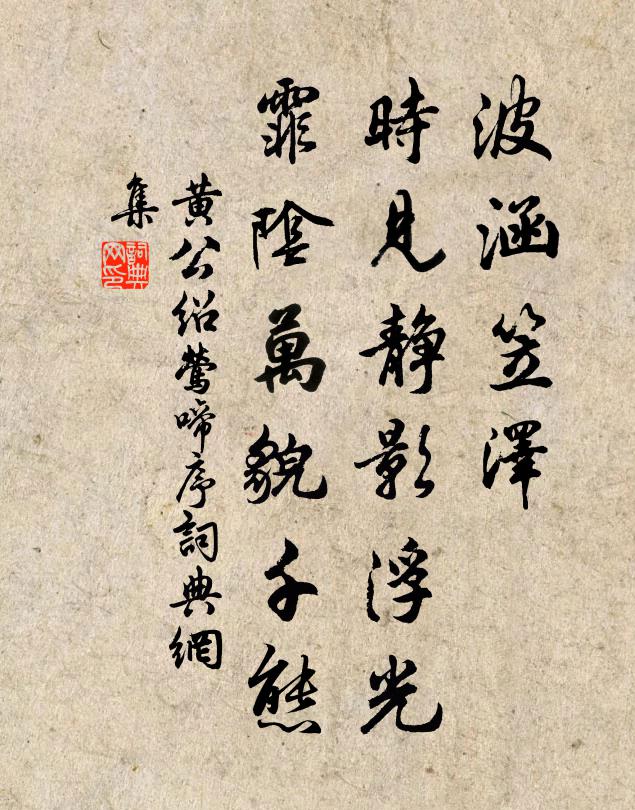 波涵笠澤
時見靜影浮光
霏陰萬貌千態
黄公绍鶯啼序詞典網
集
詞典网印